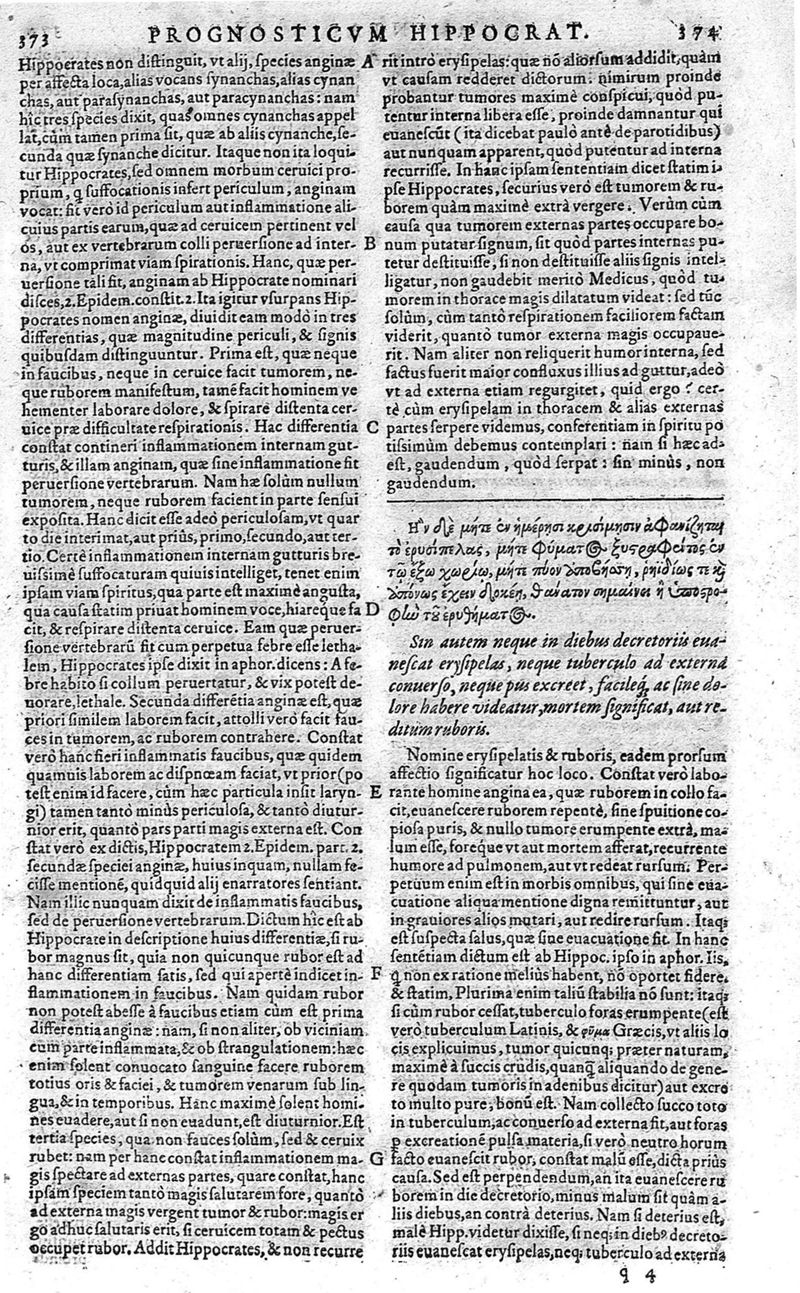 373 PROGNOSTICVM HIPPOCRAT. 374
Hippocrates non distinguit, vt alij, species anginæ
per affecta loca, alias vocans synanchas, alias cynan
chas, aut parasynanchas, aut paracynanchas: nam
hîc tres species dixit, quas omnes cynanches appel
lāt, cùm tamen prima sit, quæ ab aliis cynanche, se-
cunda quæ synanche dicitur. Itaque non ita loqui-
tur Hippocrates, sed omnem morbum ceruici pro-
prium, q suffocationis infert periculum, anginam
vocat: fit verò id periculum aut inflammatione ali-
cuius partis earum, quæ ad ceruicem pertinent vel
os, aut ex vertebrarum colli peruersione ad inter-
na, vt comprimat viam spirationis. Hanc, quæ per-
uersione tali fit, anginam ab Hippocrate nominari
disces, 2. Epidem. constit. 2. Ita igitur vsurpans Hip-
pocrates nomen anginæ, diuidit eam modò in tres
differentias, quæ magnitudine periculi, & signis
quibusdam distinguuntur. Prima est, quæ neque
in faucibus, neque in ceruice facit tumorem, ne-
que ruborem manifestum, tamē facit hominem ve
hementer laborare dolore, & spirare distenta cer-
uice præ difficultate respirationis. Hac differentia
constat contineri inflammationem internam gut-
turis, & illam anginam, quæ sine inflammatione fit
peruersione vertebrarum. Nam hæ solùm nullum
tumorem, neque ruborem facient in parte sensui
exposita. Hanc dicit esse adeò periculosam, vt quar
to die interimat, aut priùs, primo, secundo, aut ter-
tio. Certè inflammationem internam gutturis bre-
uissimè suffocaturam quiuis intelliget, tenet enim
ipsam viam spiritus, qua parte est maximè angusta,
qua causa statim priuat hominem voce, hiareque fa
cit, & respirare distenta ceruice. Eam quæ peruer-
sione vertebrarū fit cum perpetua febre esse letha-
lem, Hippocrates ipse dixit in aphor. dicens: A fe-
bre habito si collum peruertatur, & vix potest de-
uorare, lethale. Secunda differētia anginæ est, quæ
priori similem laborem facit, attolli verò facit fau-
ces in tumorem, ac ruborem contrahere. Constat
verò hanc fieri inflammatis faucibus, quæ quidem
quamuis laborem ac dispnœam faciat, vt prior (po
test enim id facere, cùm hæc particula insit laryn-
gi) tamen tantò minùs periculosa, & tantò diutur-
nior erit, quantò pars parti magis externa est. Con
stat verò ex dictis, Hippocratem 2. Epidem. part. 2.
secundæ speciei anginæ, huius inquam, nullam fe-
cisse mentionē, quidquid alij enarratores sentiant.
Nam illic nunquam dixit de inflammatis faucibus,
sed de peruersione vertebrarum. Dictum hîc est ab
Hippocrate in descriptione huius differentiæ, si ru-
bor magnus sit, quia non quicunque rubor est ad
hanc differentiam satis, sed qui apertè indicet in-
flammationem in faucibus. Nam quidam rubor
non potest abesse à faucibus etiam cùm est prima
differentia anginæ: nam, si non aliter, ob viciniam
cum parte inflammata, & ob strangulationem: hæc
enim solent conuocato sanguine facere ruborem
totius oris & faciei, & tumorem venarum sub lin-
gua, & in temporibus. Hanc maximè solent homi-
nes euadere, aut si non euadunt, est diuturnior. Est
tertia species, qua non fauces solùm, sed & ceruix
rubet: nam per hanc constat inflammationem ma-
gis spectare ad externas partes, quare constat, hanc
ipsam speciem tantò magis salutarem fore, quantò
ad externa magis vergent tumor & rubor: magis er
go adhuc salutaris erit, si ceruicem totam & pectus
occupet rubor. Addit Hippocrates, & non recurre
A
B
C
D
E
F
G
rit intrò erysipelas: quæ nō aliorsum addidit, quàm
vt causam redderet dictorum: nimirum proinde
probantur tumores maximè conspicui, quòd pu-
tentur interna libera esse, proinde damnantur qui
euanescūt (ita dicebat paulò antè de parotidibus)
aut nunquam apparent, quòd putentur ad interna
recurrisse. In hanc ipsam sententiam dicet statim i-
pse Hippocrates, securius verò est tumorem & ru-
borem quàm maximè extrà vergere. Verùm cùm
causa qua tumorem externas partes occupare bo-
num putatur signum, sit quòd partes internas pu-
tetur destituisse, si non destituisse aliis signis intel-
ligatur, non gaudebit meritò Medicus, quòd tu-
morem in thorace magis dilatatum videat: sed tūc
solùm, cùm tantò respirationem faciliorem factam
viderit, quantò tumor externa magis occupaue-
rit. Nam aliter non reliquerit humor interna, sed
factus fuerit maior confluxus illius ad guttur, adeò
vt ad externa etiam regurgitet, quid ergo? cer-
tè cùm erysipelam in thoracem & alias externas
partes serpere videmus, conferentiam in spiritu po
tissimùm debemus contemplari: nam si hæc ad-
est, gaudendum, quòd serpat: sin minùs, non
gaudendum.
Ἢν δὲ μήτε ἐν ἡμέρῃσι κρισίμησιν ἀφανίζηται
τὸ ἐρυσίπελας, μήτε φύματος ξυστραφέντος ἐν
τῷ ἔξω χωρίῳ, μήτε πύον ἀποβήσσῃ, ῥηϊδίως τε καὶ
ἀπόνως ἔχειν δοκέῃ, θάνατον σημαίνει ἢ ὑποστρο-
φὴν τοῦ ἐρυθήματος.
Sin autem neque in diebus decretoriis eua-
nescat erysipelas, neque tuberculo ad externa
conuerso, neque pus excreet, facileq, ac sine do-
lore habere videatur, mortem significat, aut re-
ditum ruboris.
Nomine erysipelatis & ruboris, eadem prorsum
affectio significatur hoc loco. Constat verò labo-
rante homine angina ea, quæ ruborem in collo fa-
cit, euanescere ruborem repentè, sine spuitione co-
piosa puris, & nullo tumore erumpente extrà, ma-
lum esse, foreque vt aut mortem afferat, recurrente
humore ad pulmonem, aut vt redeat rursum. Per-
petuum enim est in morbis omnibus, qui sine eua-
cuatione aliqua mentione digna remittuntur, aut
in grauiores alios mutari, aut redire rursum. Itaq;
est suspecta salus, quæ sine euacuatione fit. In hanc
sentētiam dictum est ab Hippoc. ipso in aphor. Iis,
q non ex ratione meliùs habent, nō oportet fidere,
& statim, Plurima enim taliū stabilia nō sunt: itaq;
si cùm rubor cessat, tuberculo foras erumpente (est
verò tuberculum Latinis, & φῦμα Græcis, vt aliis lo
cis explicuimus, tumor quicunq; præter naturam,
maximè à succis crudis, quanq aliquando de gene-
re quodam tumoris in adenibus dicitur) aut excre
to multo pure, bonū est. Nam collecto succo toto
in tuberculum, ac conuerso ad externa fit, aut foras
p excreationē pulsa materia, si verò neutro horum
facto euanescit rubor, constat malū esse, dicta priùs
causa. Sed est perpendendum, an ita euanescere ru
borem in die decretorio, minus malum sit quàm a-
liis diebus, an contrà deterius. Nam si deterius est,
malè Hipp. videtur dixisse, si neq; in dieb⁹ decreto-
riis euanescat erysipelas, neq; tuberculo ad externa
q 4